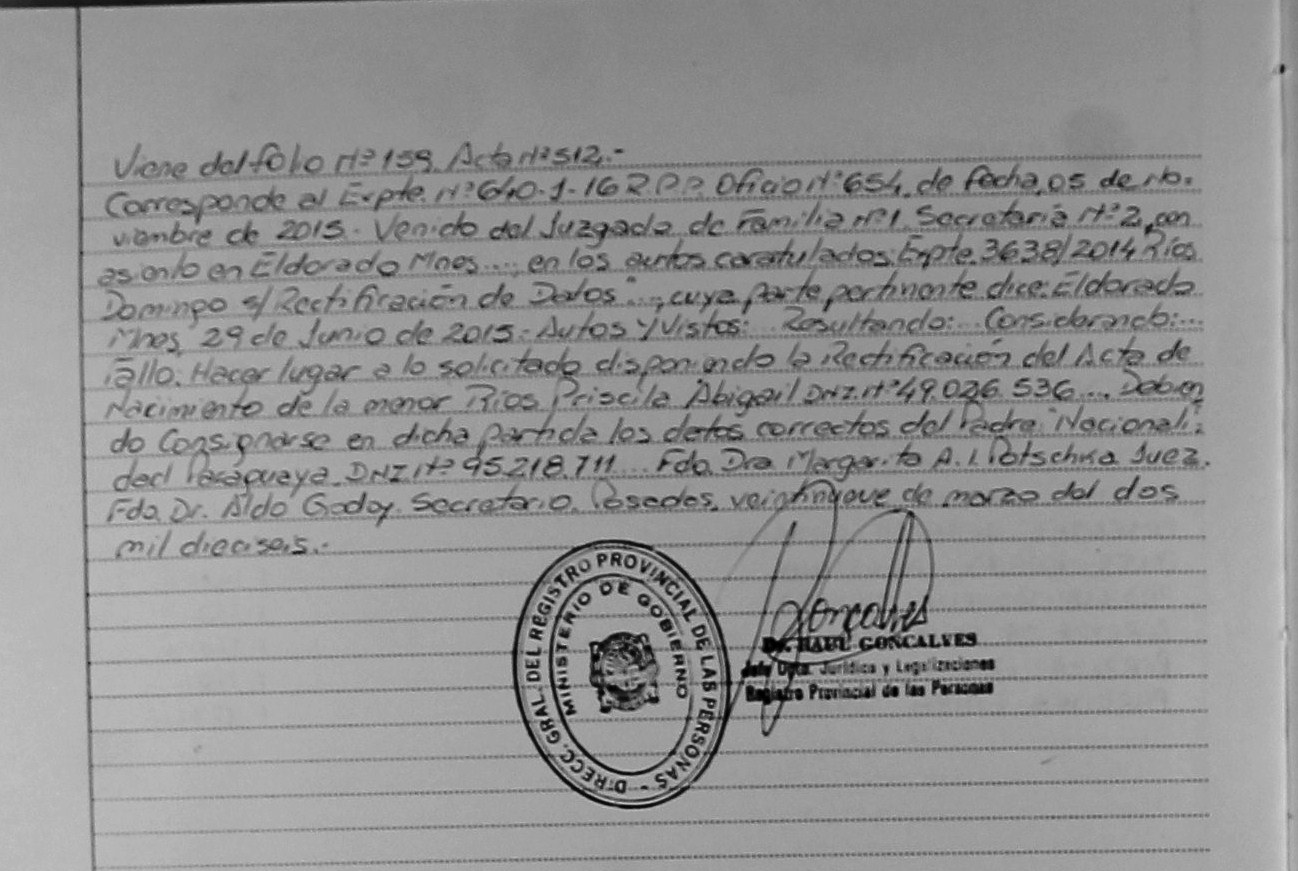 Viene del folio Nº 159. Acta Nº 512.-
Corresponde al Expte. Nº 640-J-16 R.P.P. Oficio Nº 654, de fecha, 05 de No-
viembre de 2015. Venido del Juzgado de Familia Nº 1. Secretaría Nº 2, con
asiento en Eldorado Mnes..., en los autos caratulados: Expte. 3638/2014 Ríos
Domingo s/ Rectificación de Datos"..., cuya parte pertinente dice: Eldorado
Mnes, 29 de Junio de 2015. Autos y Vistos: Resultando:... Considerando:...
Fallo: Hacer lugar a lo solicitado disponiendo la Rectificación del Acta de
Nacimiento de la menor Ríos Priscila Abigail DNI. Nº 49.026.536... Deben
do Consignarse en dicha partida los datos correctos del Padre: "Nacionali-
dad Paraguaya DNI. Nº 95.218.711... Fdo. Dra. Margarita A. I. Potschka Juez.
Fdo. Dr. Aldo Godoy. Secretario. Posadas, veintinueve de marzo del dos
mil dieciseis.-
DIRECC. GRAL. DEL REGISTRO PROVINCIAL DE LAS PERSONAS -
MINISTERIO DE GOBIERNO
Goncalves
Dr. RAUL GONCALVES
Jefe Dpto. Jurídica y Legalizaciones
Registro Provincial de las Personas